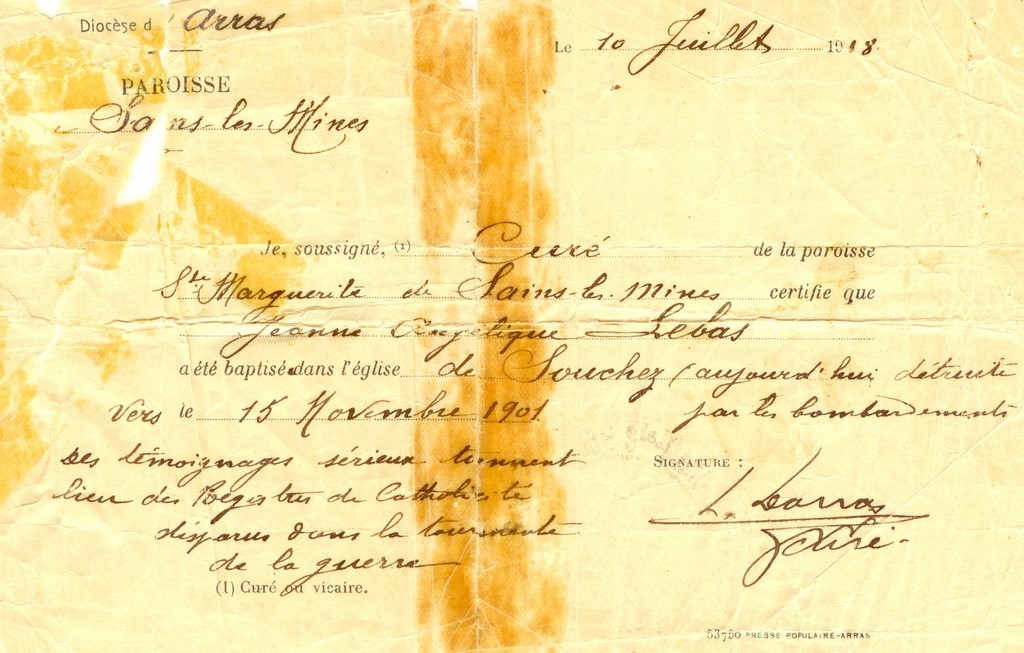 Diocèse d' Arras
Le 10 Juillet 1918
PAROISSE
Sains-les-Mines
Je, soussigné, (1) Curé de la paroisse
Ste Marguerite de Sains-les-Mines certifie que
Jeanne Angélique Lebas
a été baptisée dans l'église de Souchez (aujourd'hui détruite
par les bombardements
Vers le 15 Novembre 1901
Des témoignages sérieux tiennent
lieu des Registres de Catholicité
disparus dans la tourmente
de la guerre
SIGNATURE :
L. Darras
(1) Curé ou vicaire.
53750 PRESSE POPULAIRE-ARRAS